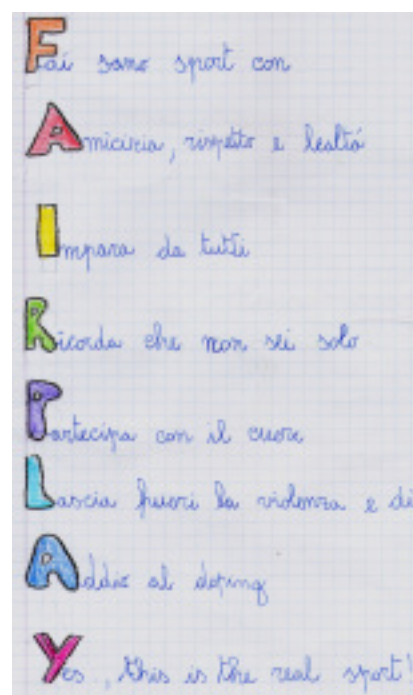 Fai sano sport con
Amicizia, rispetto e lealtà
Impara da tutti
Ricorda che non sei solo
Partecipa con il cuore
Lascia fuori la violenza e di
Addio al doping
Yes, this is the real sport!